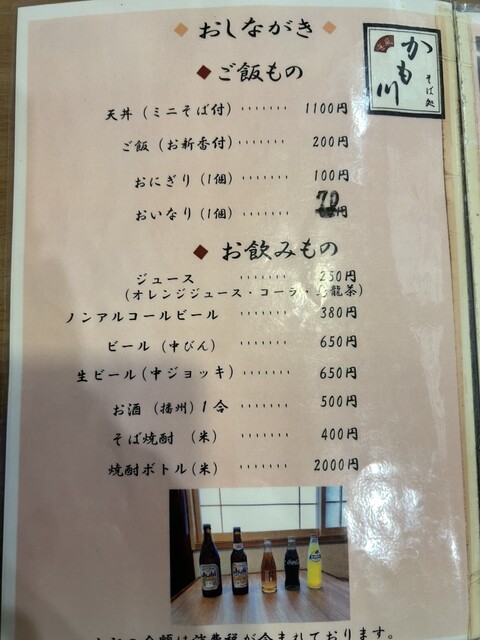 おしながき
そば処
かも川
ご飯もの
天丼(ミニそば付)・・・・・・・ 1100円
ご飯(お新香付)・・・・・・・ 200円
おにぎり(1個)・・・・・・・ 100円
おいなり(1個)・・・・・・・ 70円
お飲みもの
ジュース ・・・・・・・ 250円
(オレンジジュース・コーラ・烏龍茶)
ノンアルコールビール ・・・・・・・ 380円
ビール(中びん) ・・・・・・・ 650円
生ビール(中ジョッキ) ・・・・・・・ 650円
お酒(播州)1合 ・・・・・・・ 500円
そば焼酎 (米) ・・・・・・・ 400円
焼酎ボトル(米) ・・・・・・・ 2000円
Asahi
Asahi
の金額は消費税が含まれております。